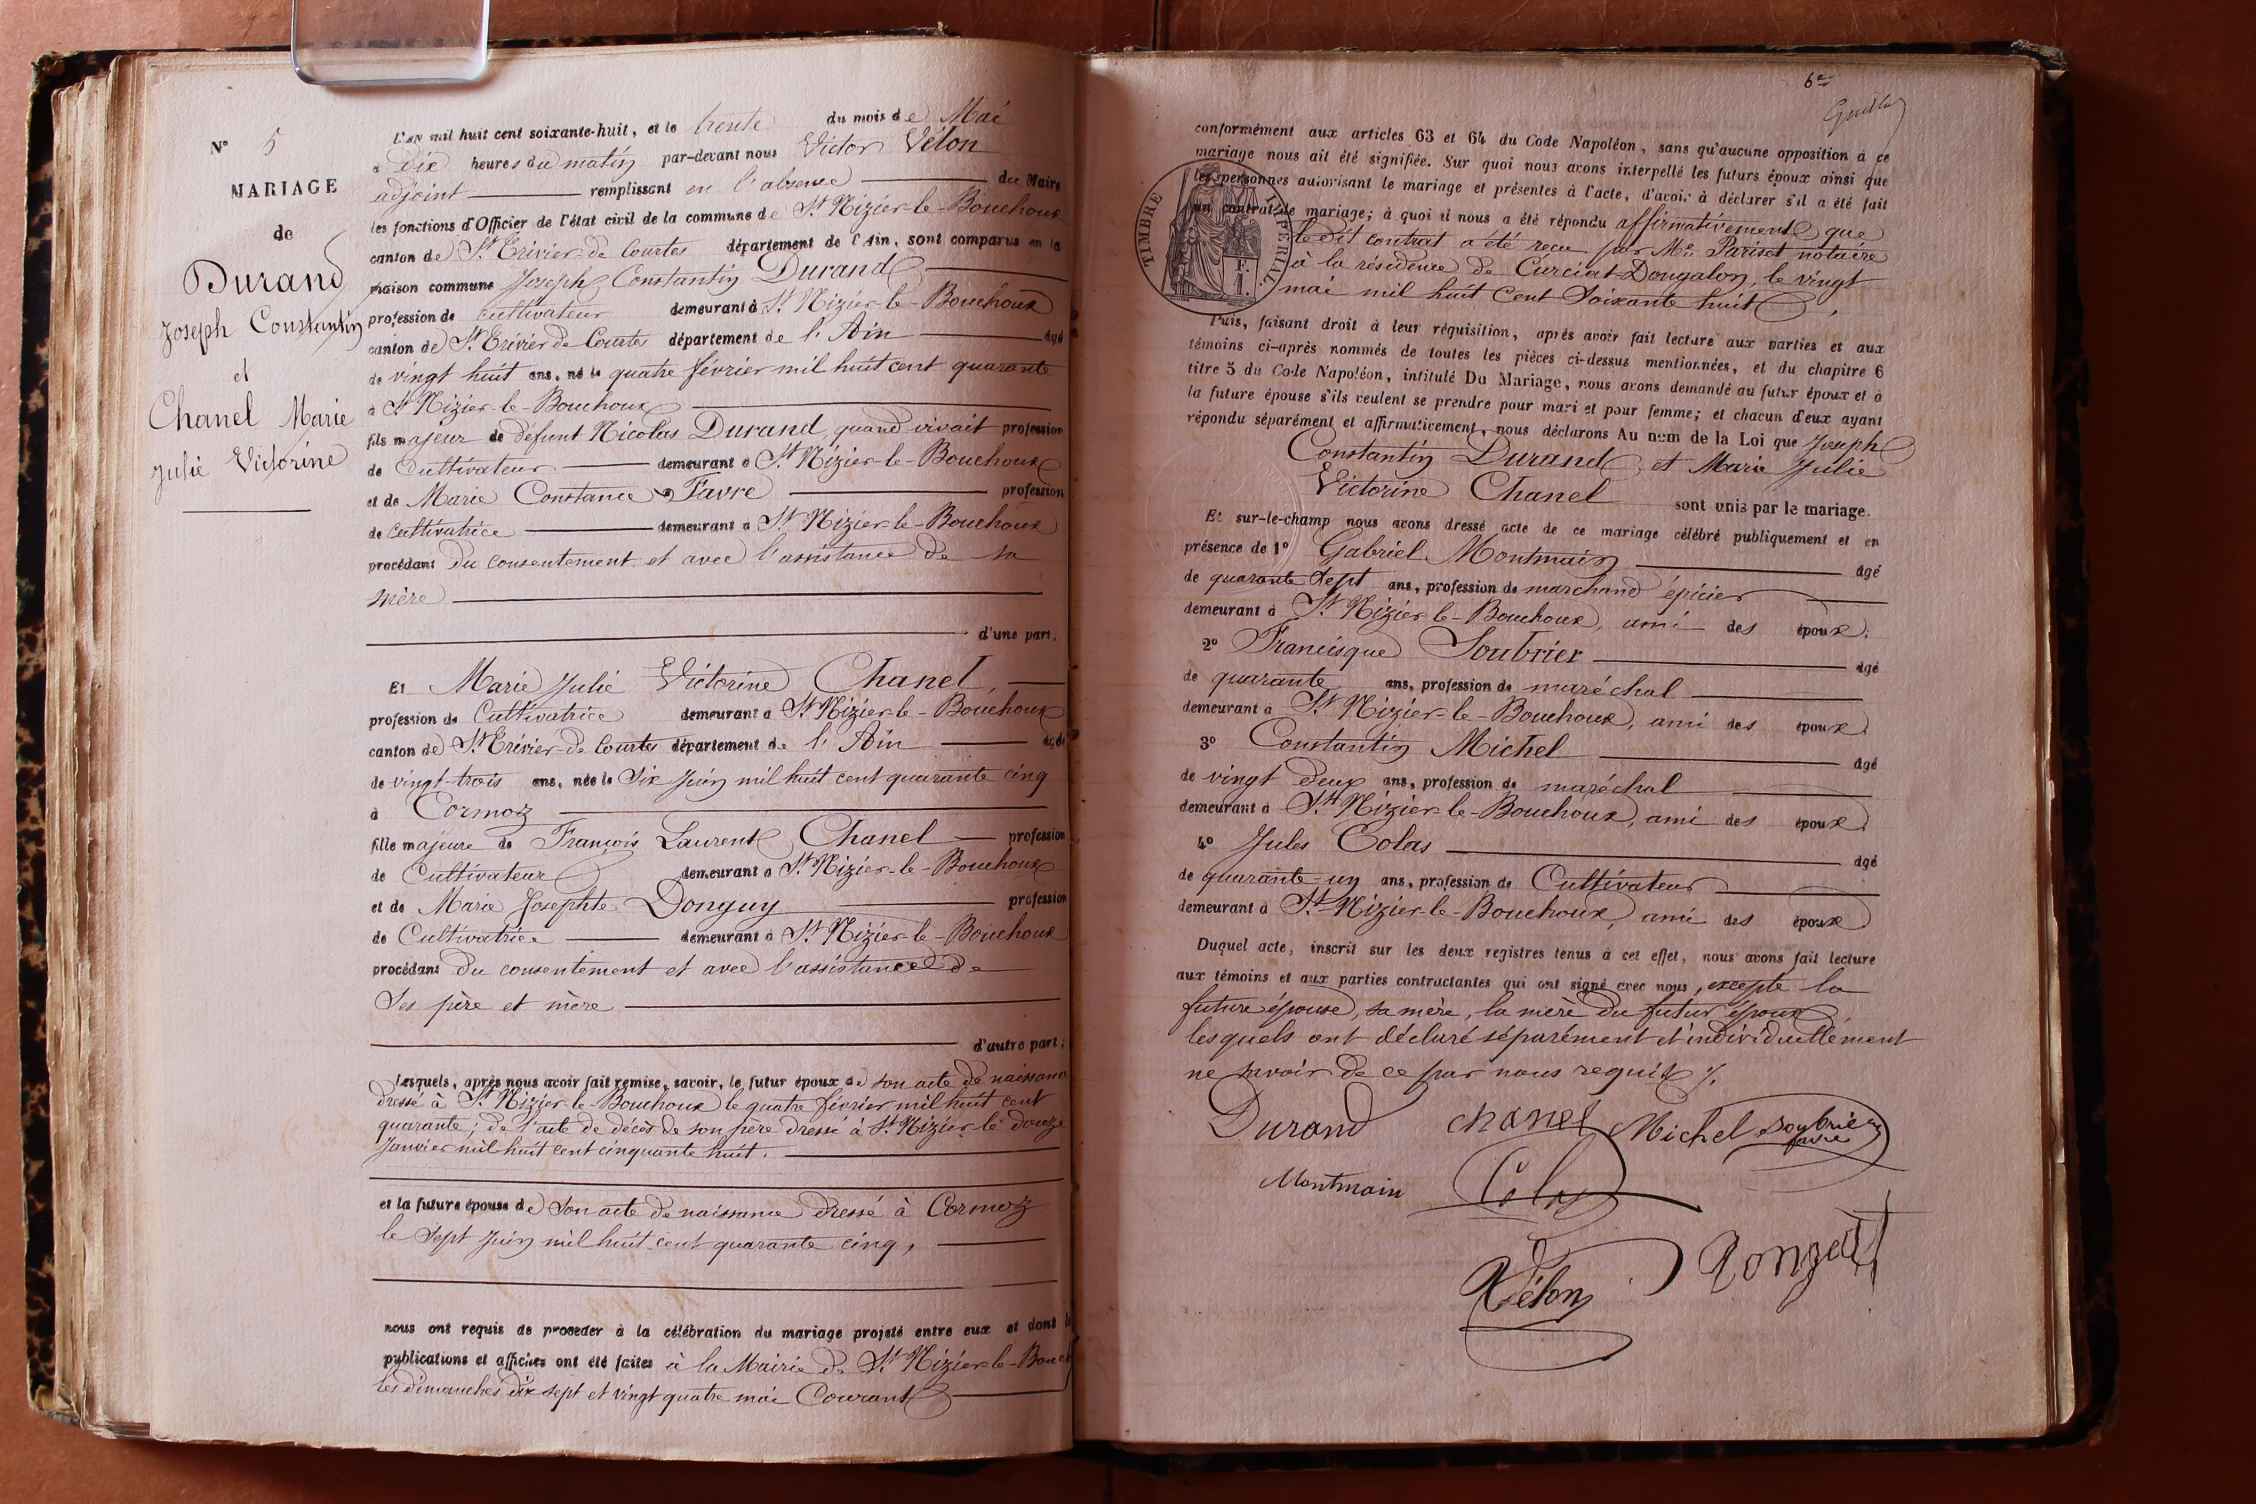 N° 5
MARIAGE
de
Durand
Joseph Constantin
et
Chanel Marie
Julie Victorine
L'an mil huit cent soixante-huit, et le trente du mois de Mai
à dix heures du matin par-devant nous Victor Vélon
adjoint remplissant en l'absence du Maire
les fonctions d'Officier de l'état civil de la commune de St Nizier-le-Bouchoux
canton de St Trivier de Courtes département de l'Ain, sont comparus en la
maison commune Joseph Constantin Durand
profession de cultivateur demeurant à St Nizier-le-Bouchoux
canton de St Trivier de Courtes département de l'Ain âgé
de vingt huit ans, né le quatre février mil huit cent quarante
à St Nizier-le-Bouchoux
fils majeur de défunt Nicolas Durand, quand vivait profession
de Cultivateur demeurant à St Nizier-le-Bouchoux
et de Marie Constance Favre profession
de cultivatrice demeurant à St Nizier-le-Bouchoux
procédant du consentement et avec l'assistance de sa
mère
d'une part.
Et Marie Julie Victorine Chanel,
profession de Cultivatrice demeurant à St Nizier-le-Bouchoux
canton de St Trivier-de Courtes département de l'Ain âgée
de vingt-trois ans, née le Six Juin mil huit cent quarante cinq
à Cormoz
fille majeure de François Laurent Chanel profession
de Cultivateur demeurant à St Nizier-le-Bouchoux
et de Marie Josephte Donguy profession
de Cultivatrice demeurant à St Nizier-le-Bouchoux
procédant du consentement et avec l'assistance de
Ses père et mère
d'autre part;
Lesquels, après nous avoir fait remise, savoir, le futur époux de son acte de naissance
dressé à St Nizier-le-Bouchoux le quatre février mil huit cent
quarante; de l'acte de décès de son père dressé à St Nizier le douze
Janvier mil huit cent cinquante huit.
et la future épouse de son acte de naissance dressé à Cormoz
le Sept Juin mil huit cent quarante cinq,
nous ont requis de procéder à la célébration du mariage projeté entre eux et dont les
publications et affiches ont été faites à la Mairie de St Nizier-le-Bouch
les dimanches dix sept et vingt quatre mai Courant
6e
conformément aux articles 63 et 64 du Code Napoléon, sans qu'aucune opposition à ce
mariage nous ait été signifiée. Sur quoi nous avons interpellé les futurs époux ainsi que
les personnes autorisant le mariage et présentes à l'acte, d'avoir à déclarer s'il a été fait
un contrat de mariage; à quoi il nous a été répondu affirmativement que
le dit contrat a été reçu par Me Pariset notaire
à la résidence de Curciat-Dongalon, le vingt
mai mil huit Cent Soixante huit,
TIMBRE IMPERIAL
1 F.
Puis, faisant droit à leur réquisition, après avoir fait lecture aux parties et aux
témoins ci-après nommés de toutes les pièces ci-dessus mentionnées, et du chapitre 6
titre 5 du Code Napoléon, intitulé Du Mariage, nous avons demandé au futur époux et à
la future épouse s'ils veulent se prendre pour mari et pour femme; et chacun d'eux ayant
répondu séparément et affirmativement, nous déclarons Au nom de la Loi que Joseph
Constantin Durand, et Marie Julie
Victorine Chanel sont unis par le mariage.
Et sur-le-champ nous avons dressé acte de ce mariage célébré publiquement et en
présence de 1° Gabriel Montmain âgé
de quarante Sept ans, profession de marchand épicier
demeurant à St Nizier-le-Bouchoux, ami des époux.
2° Francisque Soubrier âgé
de quarante ans, profession de maréchal
demeurant à St Nizier-le-Bouchoux, ami des époux.
3° Constantin Michel âgé
de vingt deux ans, profession de maréchal
demeurant à St Nizier-le-Bouchoux, ami des époux.
4° Jules Colas âgé
de quarante-un ans, profession de Cultivateur
demeurant à St Nizier-le-Bouchoux, ami des époux
Duquel acte, inscrit sur les deux registres tenus à cet effet, nous avons fait lecture
aux témoins et aux parties contractantes qui ont signé avec nous, excepté la
future épouse, sa mère, la mère du futur époux
lesquels ont déclaré séparément et individuellement
ne savoir de ce par nous requis /.
Durand chanel Michel Soubrier
Montmain Colas
Vélon